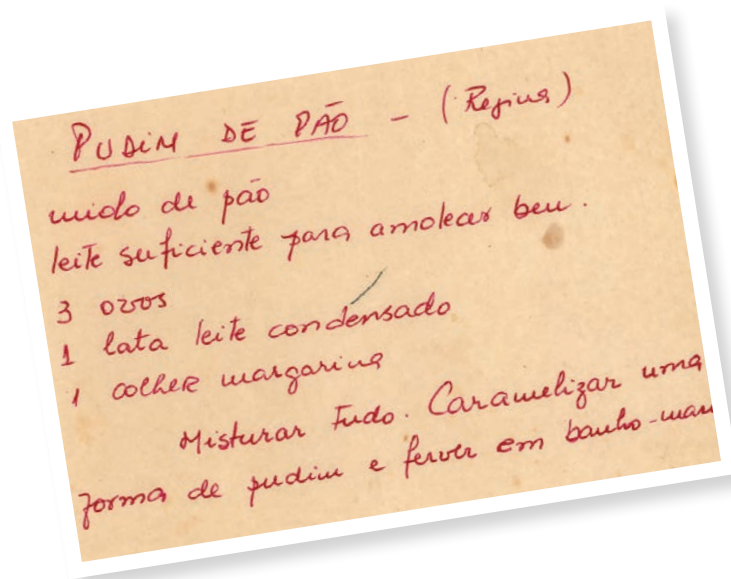 PUDIM DE PÃO - (Regina)
miolo de pão
leite suficiente para amolecer bem.
3 ovos
1 lata leite condensado
1 colher margarina
Misturar tudo. Caramelizar uma
forma de pudim e ferver em banho-mari